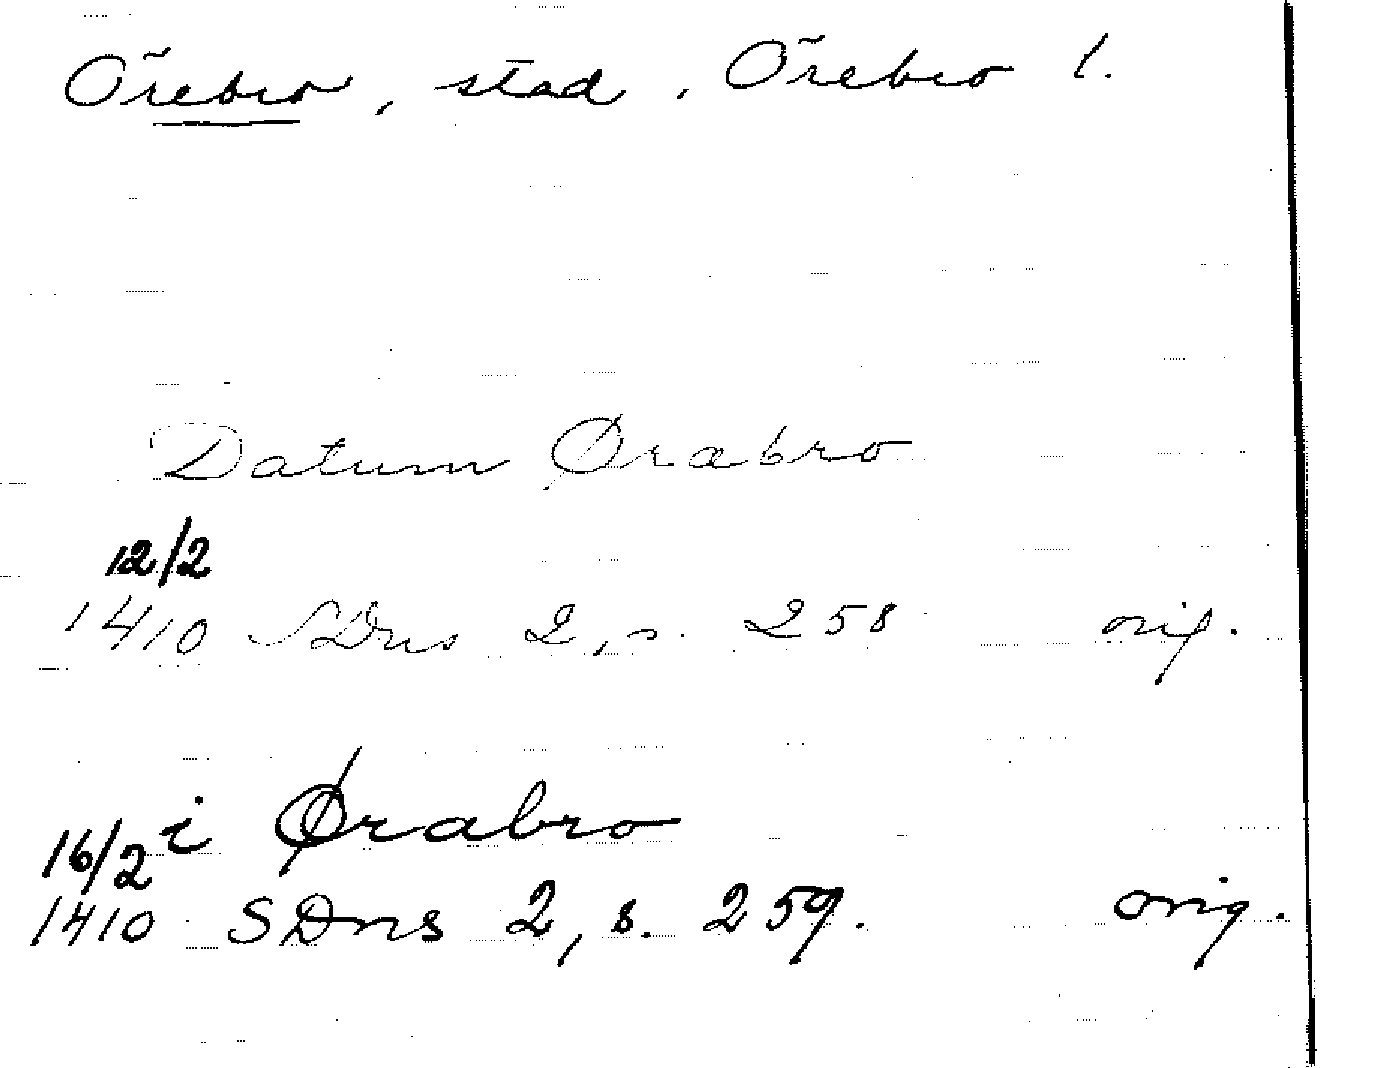 Örebro, stad, Örebro l.
Datum Ørabro
12/2
1410 SDns 2, s. 258 orig.
i Ørabro
16/2
1410 SDns 2, s. 259. orig.